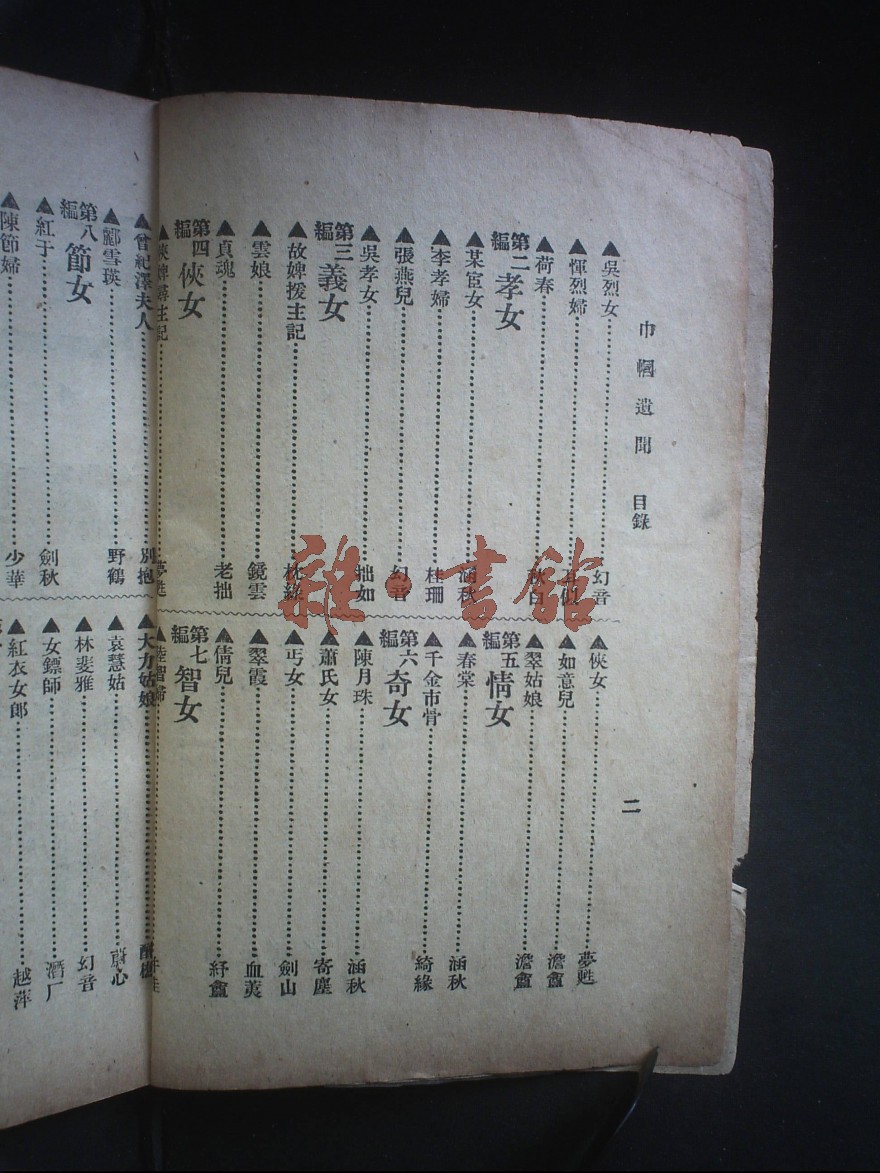 巾幗遺聞 目錄
二
▲吳烈女 幻音
▲惲烈婦
▲荷春 秋白
第二編 孝女
▲某宦女 涵秋
▲李孝婦 桂珊
▲張燕兒 幻音
▲吳孝女 拙如
第三編 義女
▲故婢援主記 枕綠
▲雲娘 鏡雲
▲貞瑰 老拙
第四編 俠女
▲俠婢尋主記 夢甦
▲俠女 夢甦
▲如意兒 澹盦
▲翠姑娘 澹盦
第五編 情女
▲春棠 涵秋
▲千金市骨 綺緣
第六編 奇女
▲陳月珠 涵秋
▲蕭氏女 寄塵
▲丐女 劍山
▲翠霞 血荑
▲倩兒 紓盦
第七編 智女
▲陸智婦
▲曾紀澤夫人 別抱
▲酈雪瑛 野鶴
第八編 節女
▲紅于 劍秋
▲陳節婦 少華
▲大力姑娘
▲袁慧姑 心
▲林斐雅 幻音
▲女鏢師 潛厂
▲紅衣女郎 越萍
雜·書館